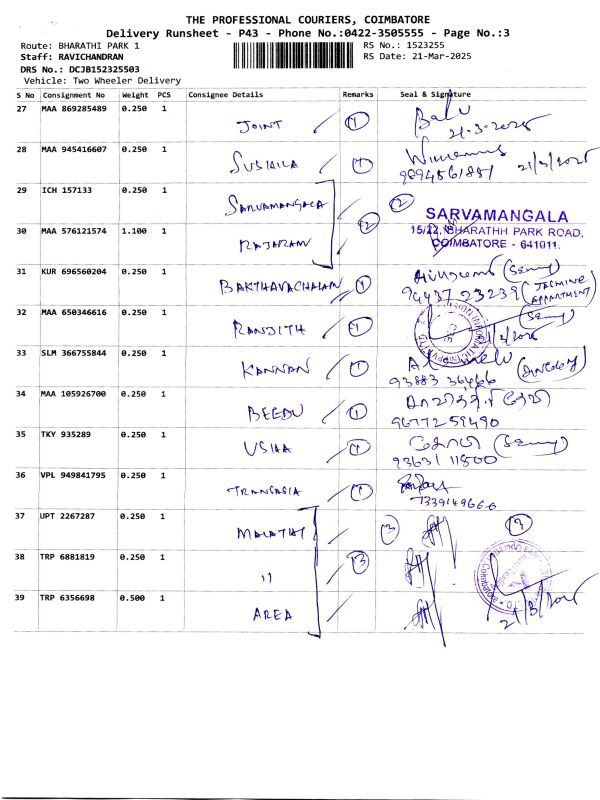 THE PROFESSIONAL COURIERS, COIMBATORE
Delivery Runsheet - P43 - Phone No.:0422-3505555 - Page No.:3
Route: BHARATHI PARK 1
RS No.: 1523255
Staff: RAVICHANDRAN
RS Date: 21-Mar-2025
DRS No.: DCJB152325503
Vehicle: Two Wheeler Delivery
S No Consignment No Weight PCS Consignee Details Remarks Seal & Signature
27 MAA 869285489 0.250 1 JOINT 1 Balu
21-3-2025
28 MAA 945416607 0.250 1 SUSHILA 1
21/3/2025
29 ICH 157133 0.250 1 SARVAMANGALA 2 2
SARVAMANGALA
15/22, BHARATHH PARK ROAD,
COIMBATORE - 641011.
30 MAA 576121574 1.100 1 RAJARAM
31 KUR 696560204 0.250 1 BAKTHAVACHALAM 1
94437 23239 (JASMINE APARTMENT)
32 MAA 650346616 0.250 1 RANJITH 1
33 SLM 366755844 0.250 1 KANNAN 1
93883 36466
34 MAA 105926700 0.250 1 BEEDU 1
96772 59490
35 TKY 935289 0.250 1 USHA 1
93631 11800
36 VPL 949841795 0.250 1 TRANSASIA 1
7339149660
37 UPT 2267287 0.250 1 MALATHI 3
38 TRP 6881819 0.250 1 " 3
39 TRP 6356698 0.500 1 AREA
21/3/2025